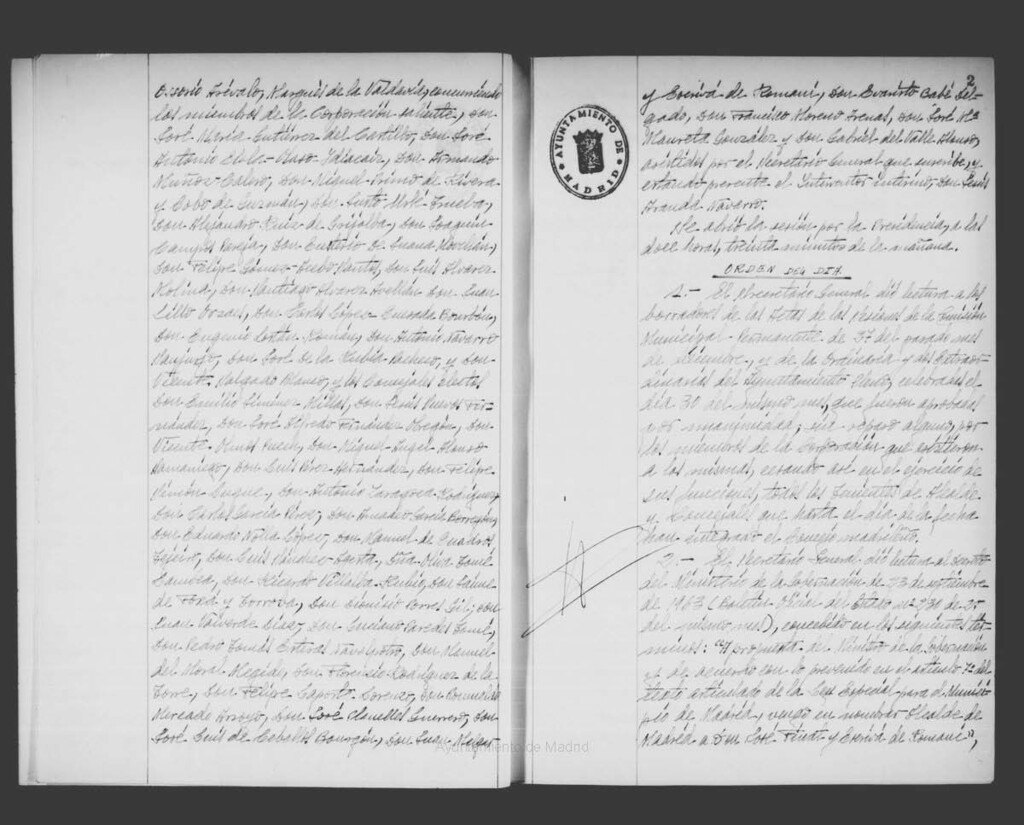 Ossorio Arévalo, Marqués de la Valdavia, y concurriendo
los miembros de la Corporación saliente, don
José María Gutiérrez del Castillo, don José
Antonio
Muñoz Calero, don Miguel Primo de Rivera
y Cobo de Guzmán, don Justo
don Alejandro Ruiz de Grijalba, don Joaquín
Campos Pareja, don
don Felipe Gómez-Acebo Santos, don Luis Alvarez
Molina, don Santiago Alvarez don Juan
Lillo Orzaes, don Carlos López Quesada Bourbón,
don Eugenio Lostau Román, don Antonio Navarro
Sanjurjo, don José de la Rubia Pacheco, y don
Vicente Salgado Blanco, y los Concejales electos
don Emilio Jiménez Millas, don Jesús
don José Alfredo Fernández don
Vicente don Miguel Angel Alonso
Samaniego, don Luis Pérez Hernández, don Felipe
Simeón Luque, don Antonio Zaragoza Rodríguez,
don Carlos García Pérez, don Amadeo García
don Eduardo Nolla López, don Manuel de Cuadros
don Luis Sánchez doña Oliva Tomé
don Ricardo Villalba Rubio, don Jaime
de Foxá y Torroba, don Dionisio Porres Gil, don
Juan Valverde Díaz, don Luciano Paredes Tomé,
don Pedro Tomás don Manuel
del Moral Megido, don Florencio Rodríguez de la
Torre, don Felipe Lorenzo, don
Mercado Arroyo, don José Guerrero, don
José Luis de Ceballos don Juan
2
y Escrivá de Romaní, don Evaristo Babé Del-
gado, don Francisco Moreno Arenas, don José Mª
González y don Gabriel del Valle Alonso,
asistidos por el Secretario General que suscribe, y
estando presente el Interventor interino, don Luis
Aranda Navarro.
Se abrió la sesión por la Presidencia, a las
doce horas, treinta minutos de la mañana.
ORDEN DEL DIA
1.- El Secretario General dió lectura a los
borradores de las Actas de las sesiones de la Comisión
Municipal Permanente de 31 del pasado mes
de diciembre, y de la Ordinaria y dos Extraor-
dinarias del Ayuntamiento Pleno, celebradas el
día 30 del mismo mes, que fueron aprobadas
por unanimidad, sin reparo alguno, por
los miembros de la Corporación que asistieron
a las mismas, cesando acto en el ejercicio de
sus funciones, todos los Tenientes de Alcalde
y Concejales que hasta el día de la fecha
han integrado el Concejo madrileño.
2.- El Secretario General dió lectura al Decreto
del Ministerio de la Gobernación de 23 de septiembre
de 1963 (Boletín Oficial del Estado nº 230 de 25
del mismo mes), concebido en los siguientes tér-
minos: "A propuesta del Ministro de la Gobernación
y de acuerdo con lo prevenido en el artículo 7º del
texto articulado de la Ley Especial para el Munici-
pio de Madrid, vengo en nombrar Alcalde de
Madrid a Don José Finat y Escrivá de Romaní",
AYUNTAMIENTO DE MADRID
Ayuntamiento de Madrid